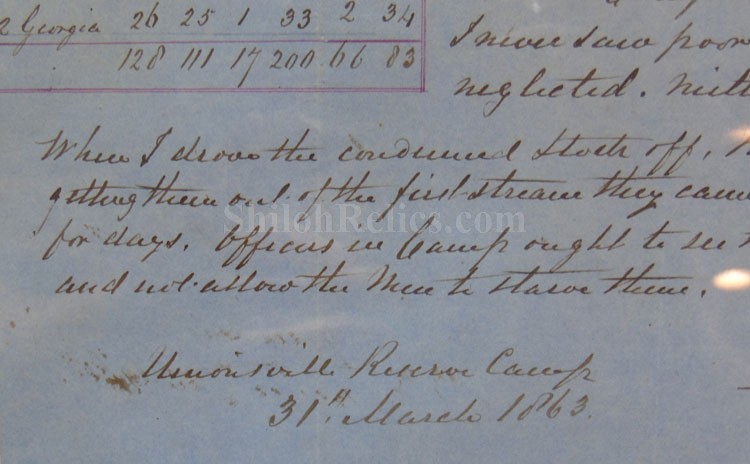 2 Georgia 26 25 1 33 2 34
128 111 17 200 66 83
I never saw poor
neglected.
When I drove the condemned Stock off,
getting them out of the first stream they came
for days. Officers in Camp ought to see
and not allow the Men to starve them.
Unionville Reserve Camp
31st March 1863.
ShilohRelics.com